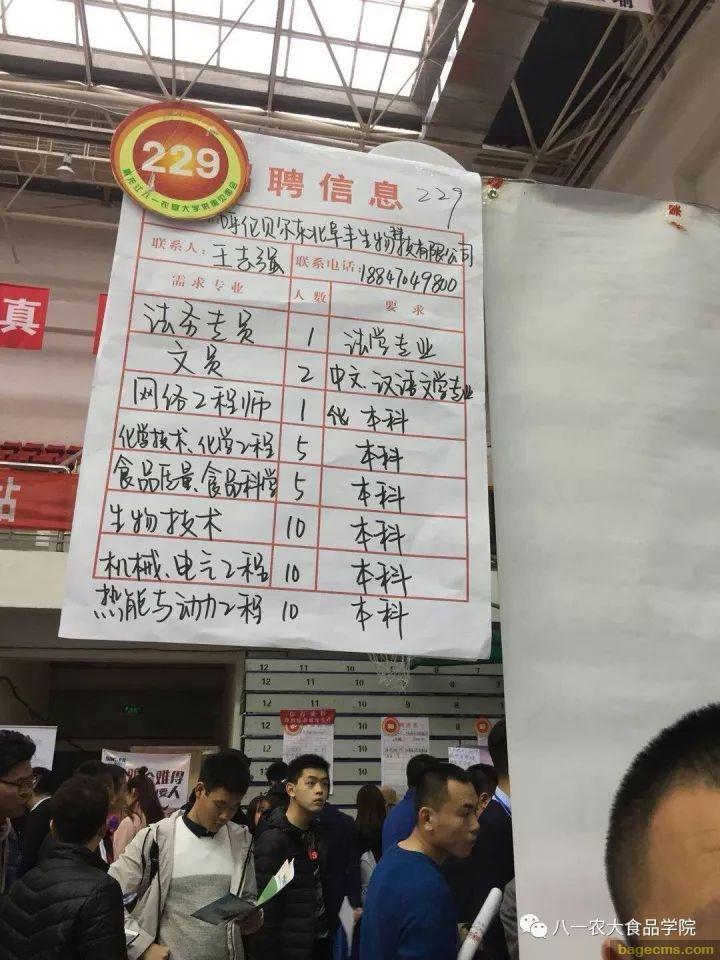 229
聘信息
229
呼伦贝尔东北阜丰生物科技有限公司
联系人: 王志强 联系电话: 18847049800
需求专业 人数 要求
法务专员 1 法学专业
文员 2 中文、汉语文学专业
网络工程师 1 化 本科
化学技术、化学工程 5 本科
食品质量、食品科学 5 本科
生物技术 10 本科
机械、电气工程 10 本科
热能与动力工程 10 本科
真
站
12 11 10
难得
人
八一农大食品学院
bagecms.com